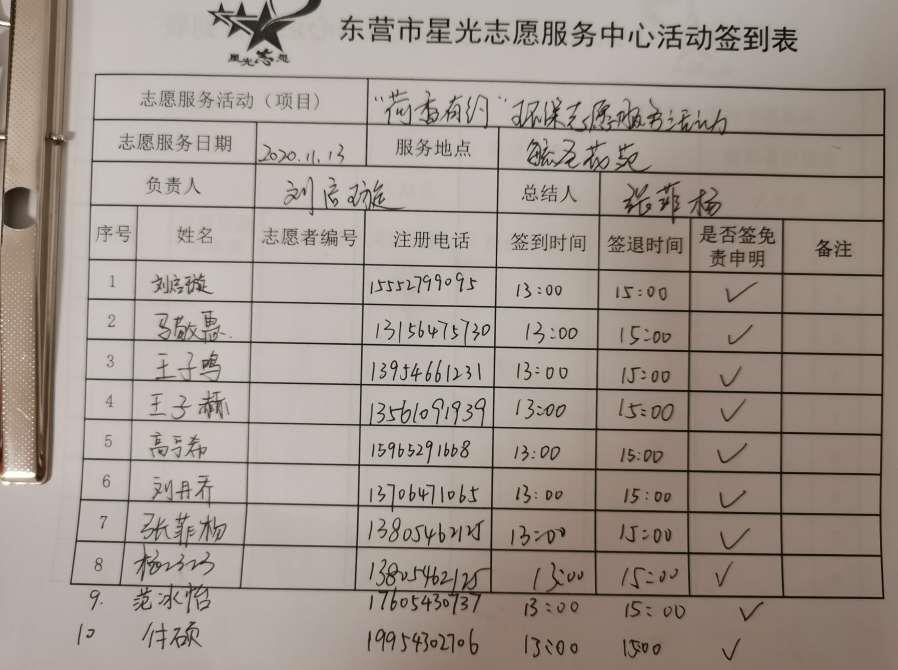 星光志愿
东营市星光志愿服务中心活动签到表
志愿服务活动（项目） “荷香有约”环保志愿服务活动
志愿服务日期 2020.11.13 服务地点
负责人 刘启璇 总结人 张菲杨
序号 姓名 志愿者编号 注册电话 签到时间 签退时间 是否签免责申明 备注
1 刘启璇 15552799095 13:00 15:00 ✓
2 马敬惠 13156475730 13:00 15:00 ✓
3 王子鸣 13954661231 13:00 15:00 ✓
4 王子赫 13561091939 13:00 15:00 ✓
5 高于希 15965291668 13:00 15:00 ✓
6 刘丹乔 13706471065 13:00 15:00 ✓
7 张菲杨 13805462125 13:00 15:00 ✓
8 13805462125 13:00 15:00 ✓
9. 范冰怡 17605430737 13:00 15:00 ✓
10 硕 19954302706 13:00 15:00 ✓